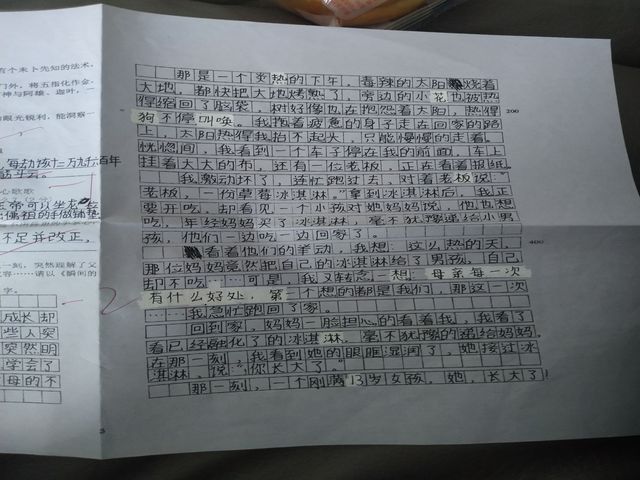 有个未卜先知的法术,
门外, 将五指化作会
神与阿雄、迦叶, 一
的眼光锐利, 能洞察一
每动该十二万九千六百年
心歌歌
不足并改正,
一刻, 突然理解了父
容……请以《瞬间的
字。
成长却
些人突
突然明
学会了
母的不
那是一个炎热的下午, 毒辣的太阳烧着
大地, 都快把大地烤熟了, 旁边的小花也被热
得缩回了脑袋, 树好像也在抱怨着太阳, 热得
200
狗不停叫唤。我拖着疲惫的身子走在回家的路
上, 太阳热得我抬不起头, 只能慢慢的走着。
恍惚间, 我看到一个车子停在我的前面, 车上
挂着大大的布, 还有一位老板, 正在看着报纸。
我激动坏了, 连忙跑过去, 对着老板说:"
老板, 一份草莓冰淇淋。"拿到冰淇淋后, 我正
要开吃, 却看见一个小孩对她妈妈说, 他也想
吃, 年轻妈妈买了冰淇淋, 毫不犹豫递给小男
孩, 他们一边吃一边回家了。
400
看着他们的举动, 我想: 这么热的天,
那位妈妈竟然把自己的冰淇淋给了男孩, 自己
却不吃……可是, 我又转念一想: 母亲每一次
有什么好处, 第一个想的都是我们, 那这一次
……我急忙跑回了家。
回到家, 妈妈一脸担心的看着我, 我看了
看已经融化了的冰淇淋, 毫不犹豫的递给妈妈,
在那一刻, 我看到她的眼眶湿润了, 她接过冰
淇淋, 说: "你长大了。"
那一刻, 一个刚满13岁女孩, 她, 长大了!